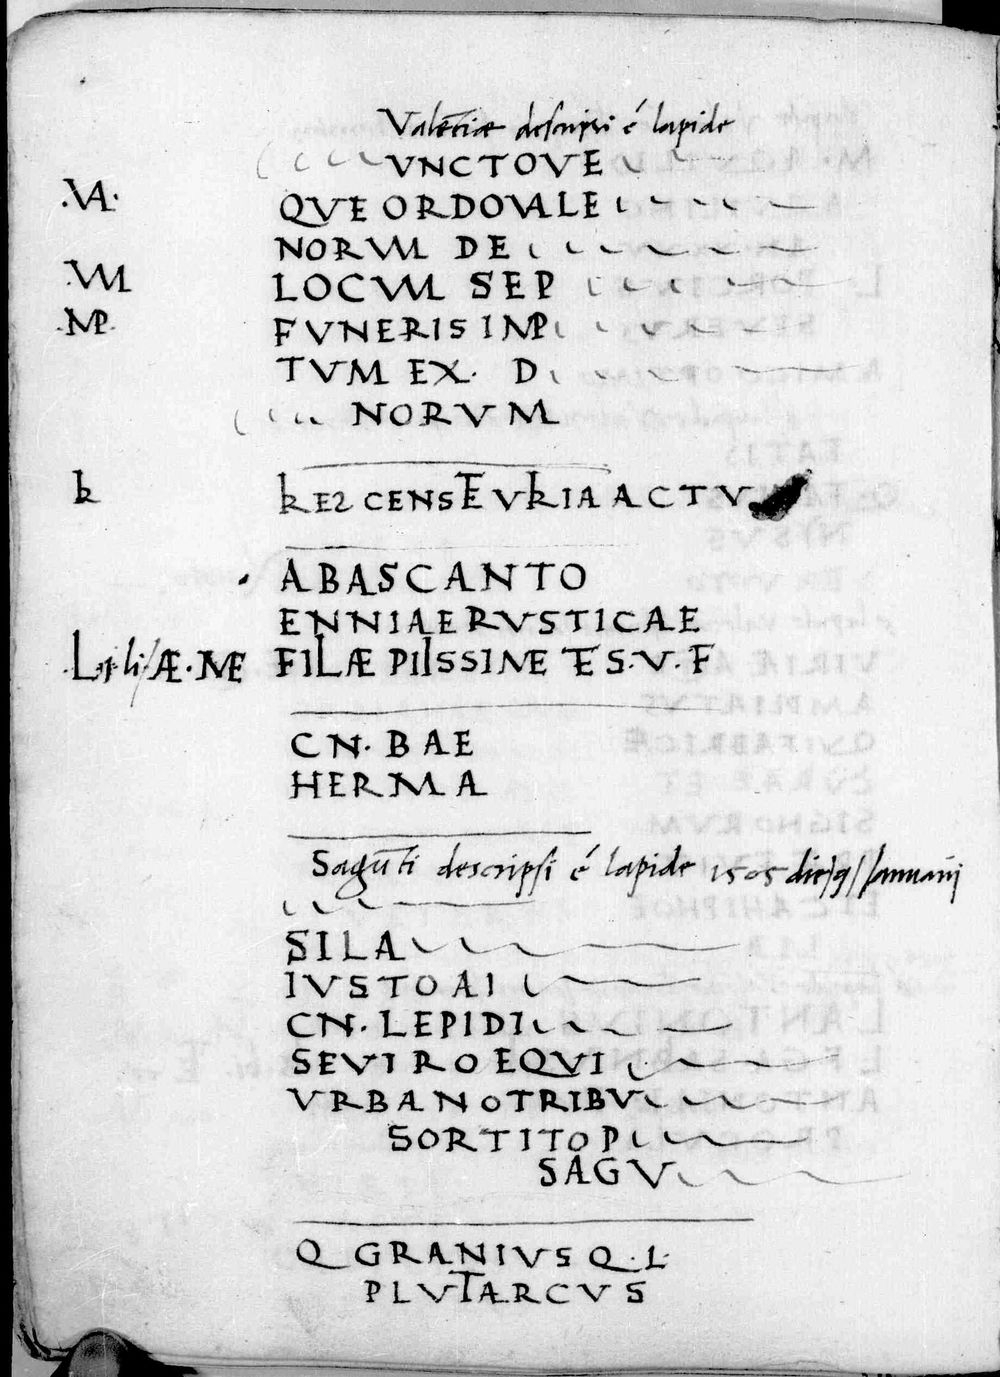 Valẽtiæ descripsi é lapide
VNCTOVE
.VA. QVE ORDOVALE
NORVM DE
.VM LOCVM SEP
.MP. FVNERIS IMP
TVM EX. D
NORVM
k kES CENSEVkIA ACTV
ABASCANTO
ENNIAERVSTICAE
Æ. ME FILÆ PIISSIME ES.V.F
CN. BAE
HERMA
Sagũti descripsi é lapide 1505 die/9/Januarij
SILA
IVSTO AI
CN. LEPIDI
SEVIRO EQVI
VRBANOTRIBV
SORTITO P
SAGV
Q GRANIVS Q.L.
PLVTARCVS